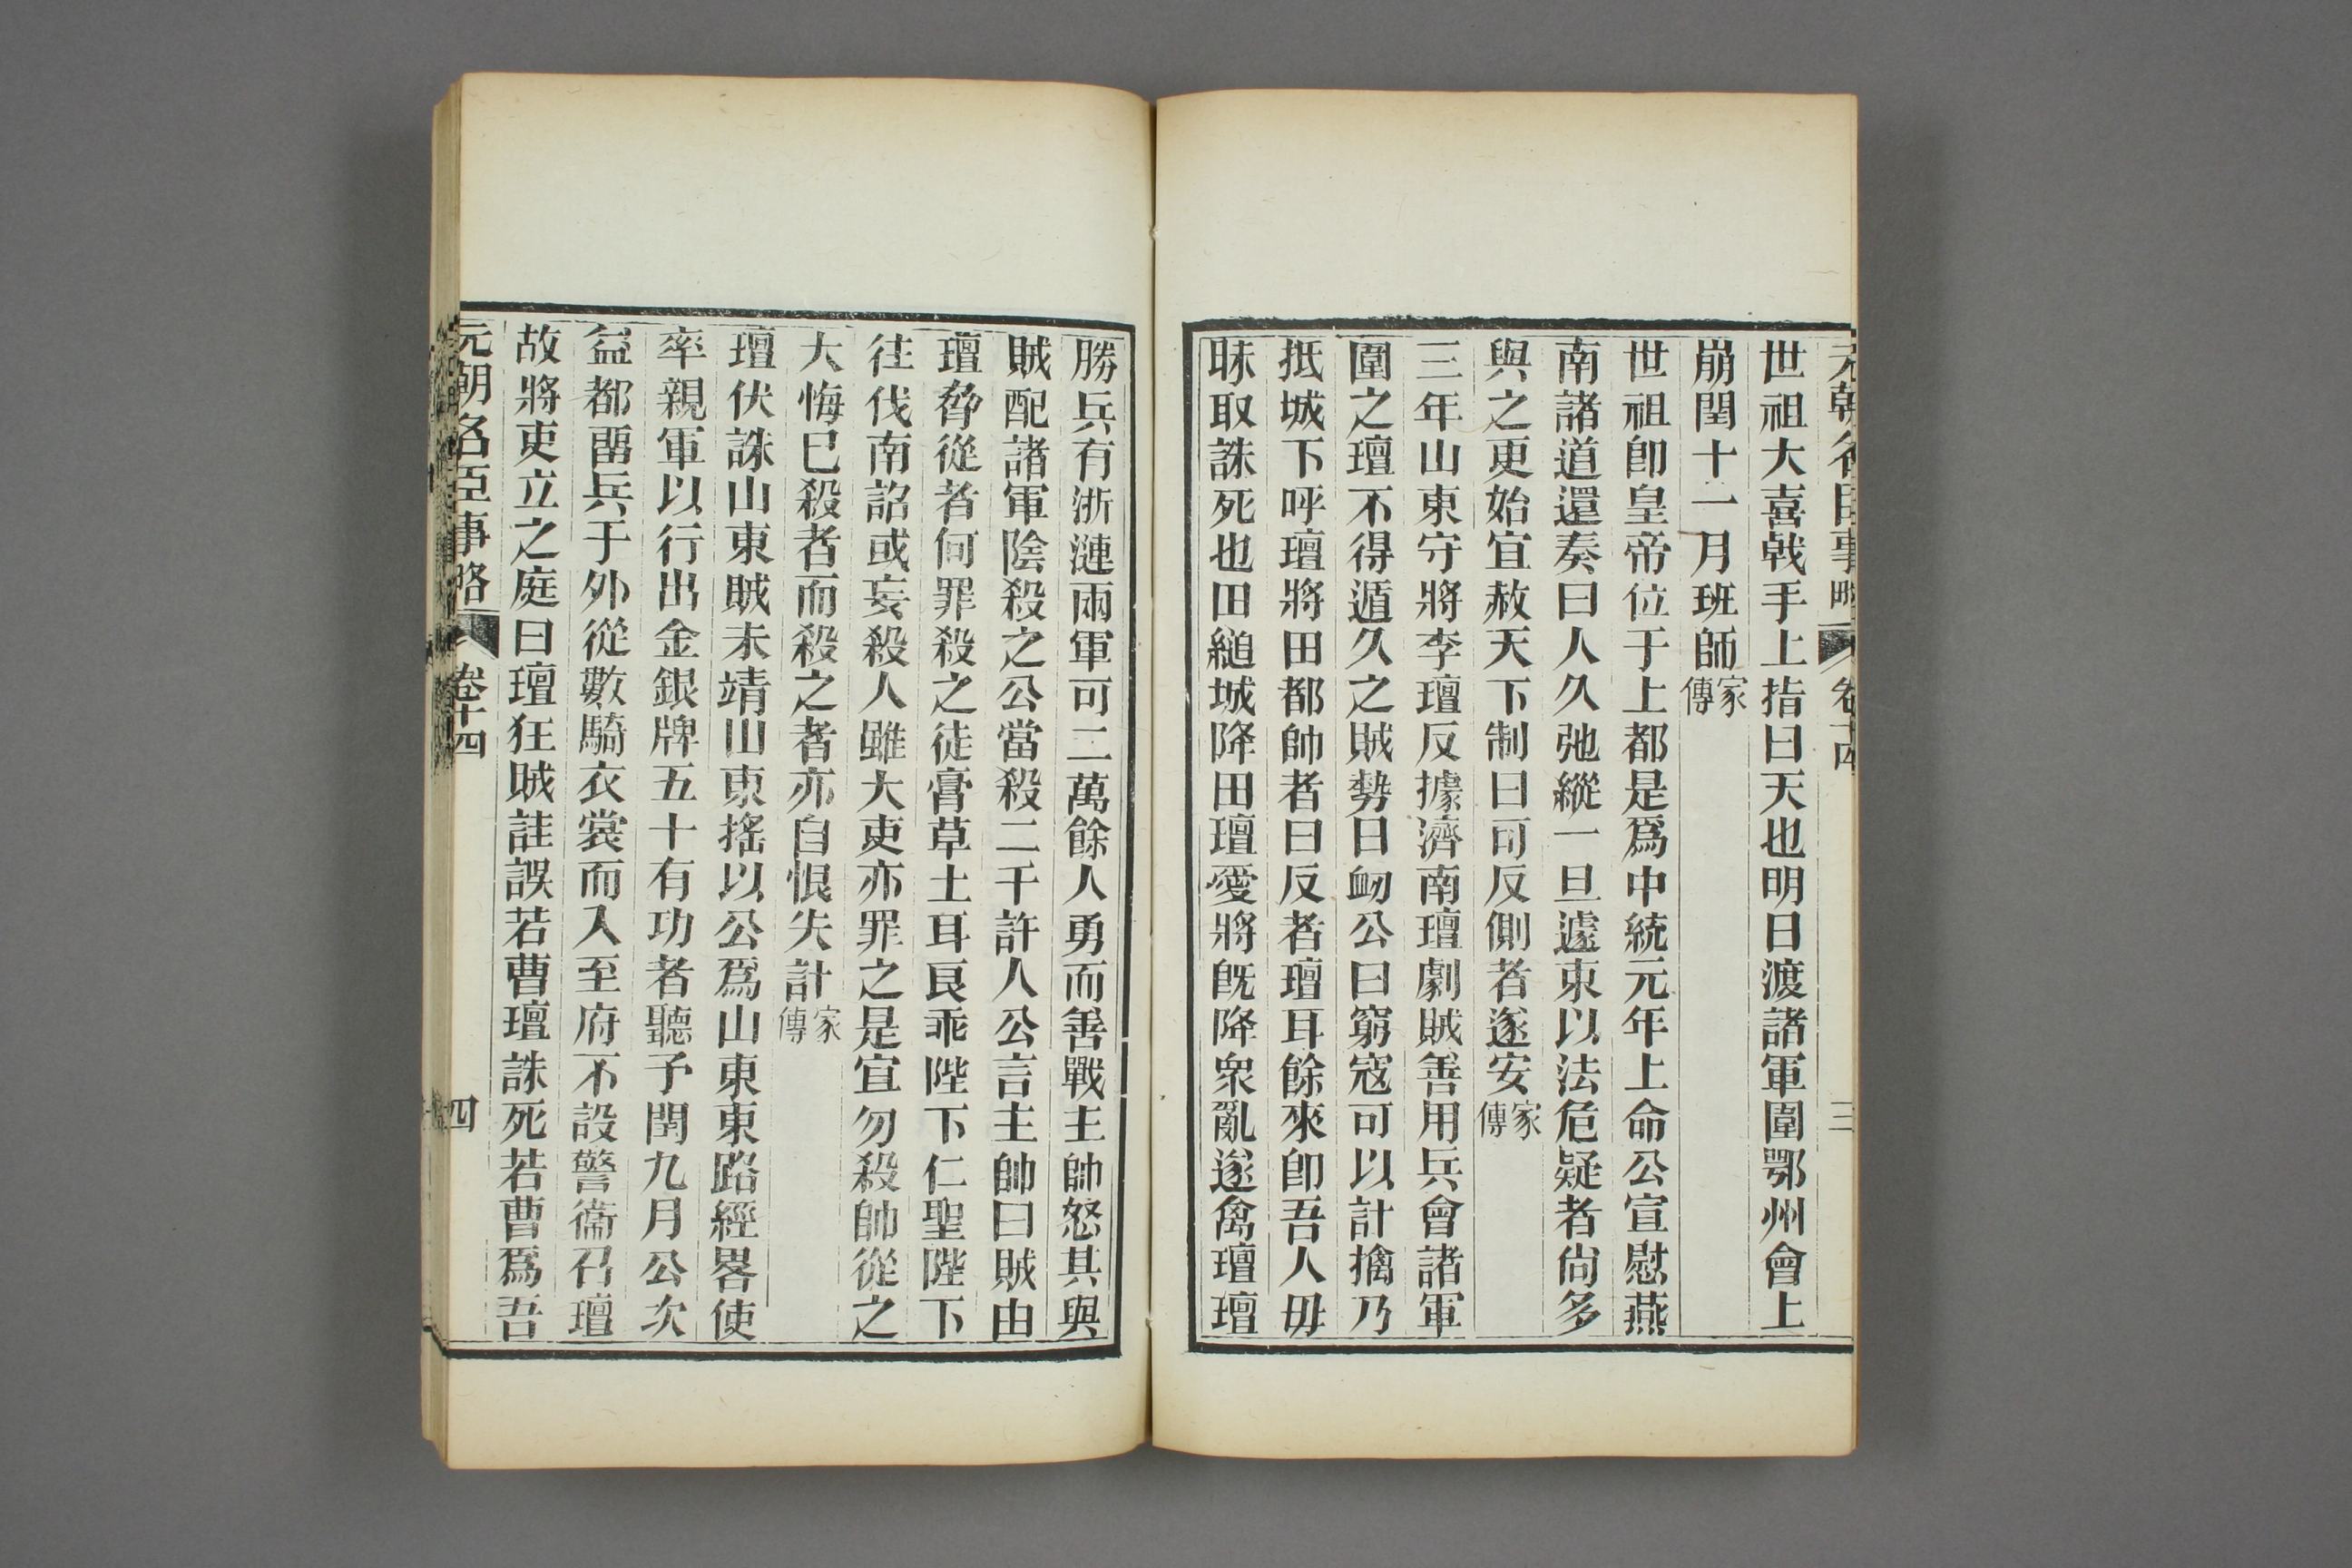 元朝名臣事略 卷十四 三
世祖大喜戟手上指曰天也明日渡諸軍圍鄂州會上
崩閏十一月班師家傳
世祖卽皇帝位于上都是爲中統元年上命公宣慰燕
南諸道還奏曰人久弛縱一旦遽束以法危疑者尙多
與之更始宜赦天下制曰可反側者遂安家傳
三年山東守將李璮反據濟南璮劇賊善用兵會諸軍
圍之璮不得遁久之賊勢日衂公曰窮寇可以計擒乃
抵城下呼璮將田都帥者曰反者璮耳餘來卽吾人毋
昧取誅死也田縋城降田璮愛將旣降衆亂遂禽璮璮
勝兵有浙漣兩軍可二萬餘人勇而善戰主帥怒其與
賊配諸軍陰殺之公當殺二千許人公言主帥曰賊由
璮脅從者何罪殺之徒膏草土耳良乖陛下仁聖陛下
往伐南詔或妄殺人雖大吏亦罪之是宜勿殺帥從之
大悔已殺者而殺之者亦自恨失計家傳
璮伏誅山東賊未靖山東搖以公爲山東東路經畧使
率親軍以行出金銀牌五十有功者聽予閏九月公次
益都畱兵于外從數騎衣裳而入至府不設警衞召璮
故將吏立之庭曰璮狂賊詿誤若曹璮誅死若曹爲吾
元朝名臣事略 卷十四 四